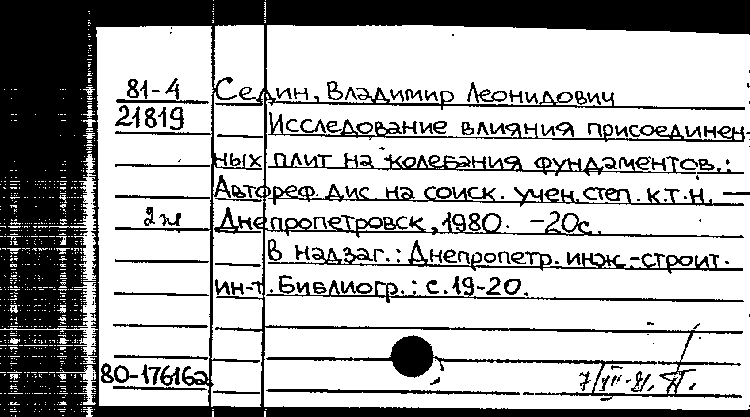 81-4 Седин, Владимир Леонидович
21819 Исследование влияния присоединен-
ных плит на колебания фундаментов.:
Автореф. дис. на соиск. учен. степ. к.т.н. —
2 Днепропетровск, 1980. -20с.
В надзаг.: Днепропетр. инж.-строит.
ин-т. Библиогр.: с.19-20.
80-176162